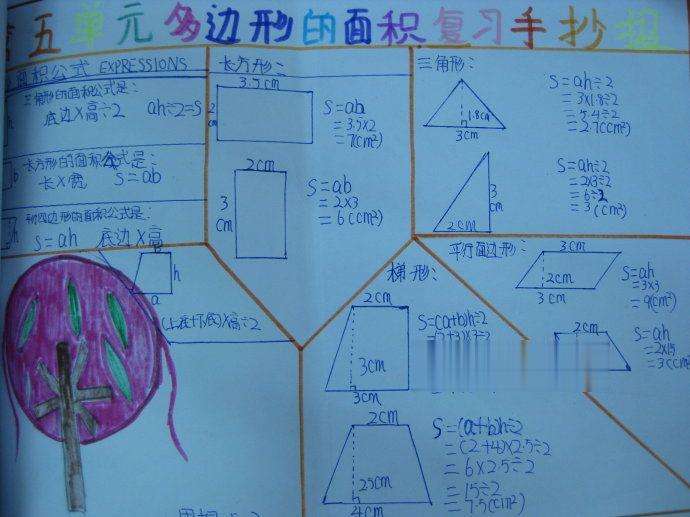 第五单元多边形的面积复习手抄报
面积公式 EXPRESSIONS
三角形的面积公式是:
底边×高÷2 ah÷2=S
长方形的面积公式是:
长×宽 S=ab
b
平行四边形的面积公式是:
S=ah 底边×高
h
a
h
a
(上底+下底)×高÷2
长方形:
3.5cm
2cm
S=ab
=3.5×2
=7(cm²)
2cm
3cm
S=ab
=2×3
=6(cm²)
三角形:
1.8cm
3cm
S=ah÷2
=3×1.8÷2
=5.4÷2
=2.7(cm²)
3cm
2cm
S=ah÷2
=2×3÷2
=6÷2
=3(cm²)
平行四边形:
3cm
2cm
3cm
S=ah
=3×3
=9(cm²)
2cm
S=ah
=2×15
=3(cm²)
梯形:
2cm
3cm
3cm
S=(a+b)h÷2
2cm
25cm
4cm
S=(a+b)h÷2
=(2+4)×2.5÷2
=6×2.5÷2
=15÷2
=7.5(cm²)